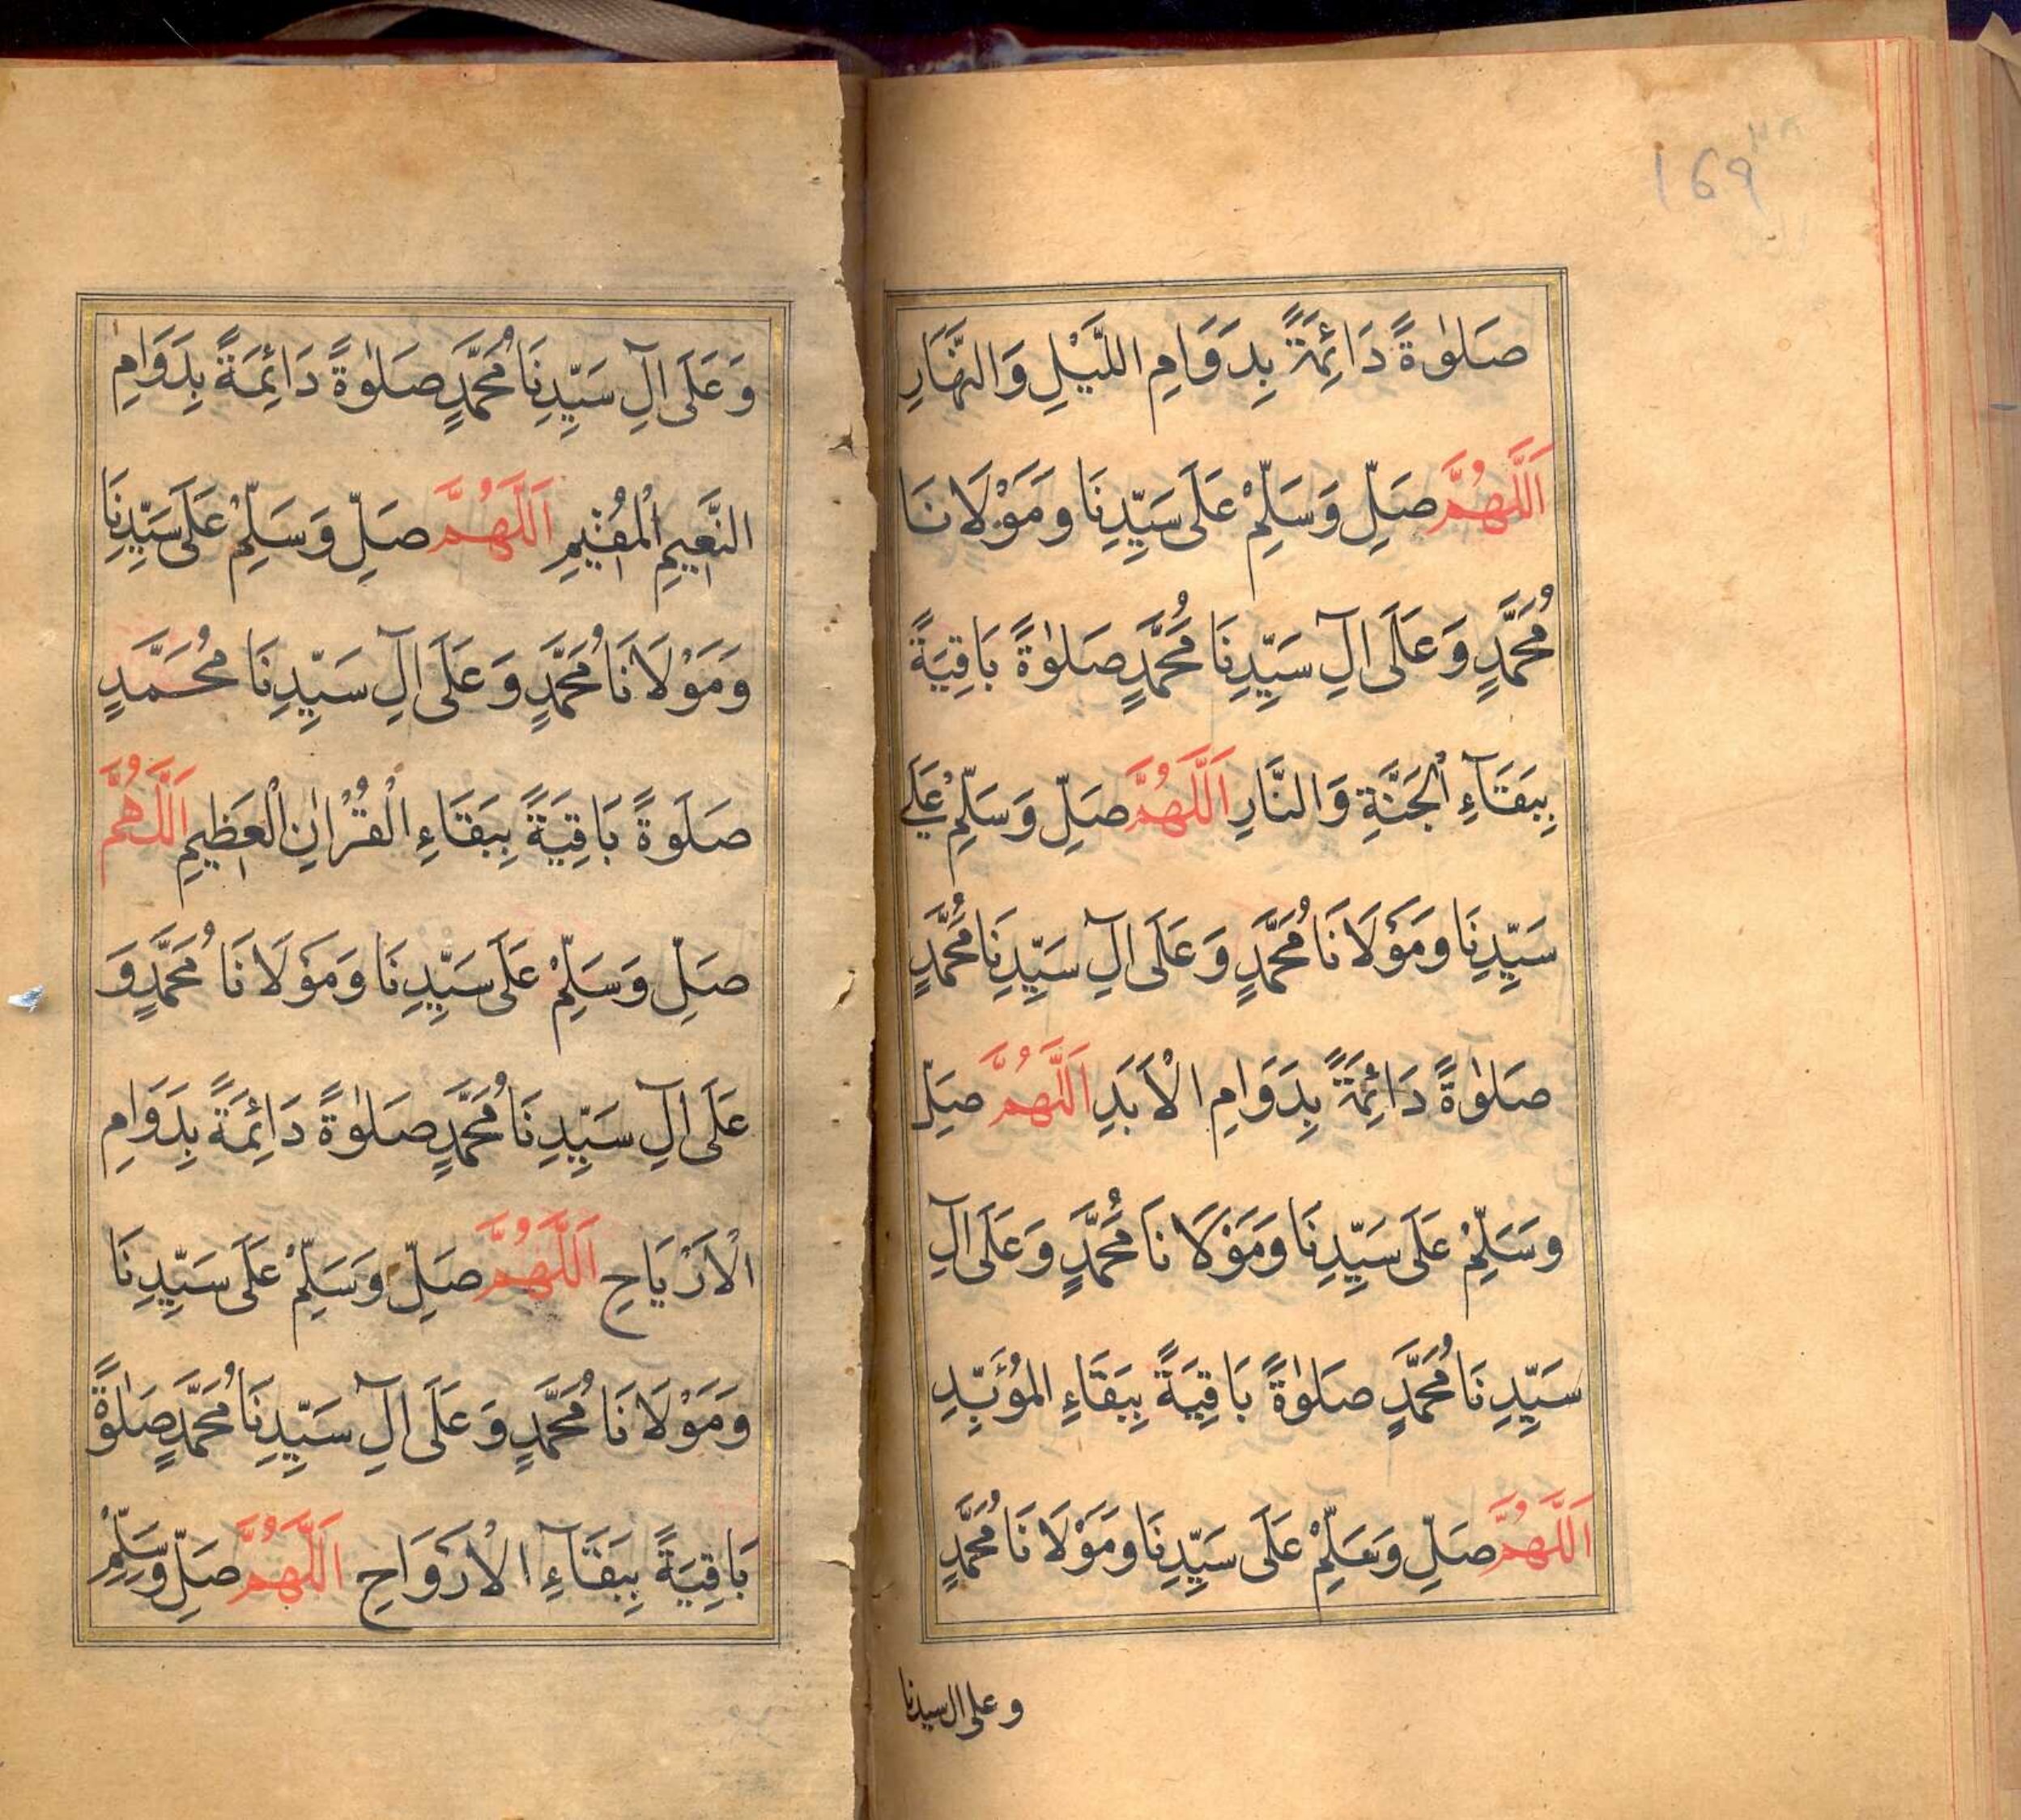 169
صَلٰوةً دَائِمَةً بِدَوَامِ اللَّيْلِ وَالنَّهَارِ
اَللّٰهُمَّ صَلِّ وَسَلِّمْ عَلَى سَيِّدِنَا وَمَوْلَانَا
مُحَمَّدٍ وَعَلَى اٰلِ سَيِّدِنَا مُحَمَّدٍ صَلٰوةً بَاقِيَةً
بِبَقَآءِ الْجَنَّةِ وَالنَّارِ اَللّٰهُمَّ صَلِّ وَسَلِّمْ عَلَى
سَيِّدِنَا وَمَوْلَانَا مُحَمَّدٍ وَعَلَى اٰلِ سَيِّدِنَا مُحَمَّدٍ
صَلٰوةً دَائِمَةً بِدَوَامِ الْاَبَدِ اَللّٰهُمَّ صَلِّ
وَسَلِّمْ عَلَى سَيِّدِنَا وَمَوْلَانَا مُحَمَّدٍ وَعَلَى اٰلِ
سَيِّدِنَا مُحَمَّدٍ صَلٰوةً بَاقِيَةً بِبَقَاءِ الْمُؤَبَّدِ
اَللّٰهُمَّ صَلِّ وَسَلِّمْ عَلَى سَيِّدِنَا وَمَوْلَانَا مُحَمَّدٍ
وعلى ال سيدنا
وَعَلَى اٰلِ سَيِّدِنَا مُحَمَّدٍ صَلٰوةً دَائِمَةً بِدَوَامِ
النَّعِيمِ الْمُقِيمِ اَللّٰهُمَّ صَلِّ وَسَلِّمْ عَلَى سَيِّدِنَا
وَمَوْلَانَا مُحَمَّدٍ وَعَلَى اٰلِ سَيِّدِنَا مُحَمَّدٍ
صَلَوةً بَاقِيَةً بِبَقَاءِ الْقُرْاٰنِ الْعَظِيمِ اَللّٰهُمَّ
صَلِّ وَسَلِّمْ عَلَى سَيِّدِنَا وَمَوْلَانَا مُحَمَّدٍ وَ
عَلَى اٰلِ سَيِّدِنَا مُحَمَّدٍ صَلٰوةً دَائِمَةً بِدَوَامِ
الْاَرْيَاحِ اَللّٰهُمَّ صَلِّ وَسَلِّمْ عَلَى سَيِّدِنَا
وَمَوْلَانَا مُحَمَّدٍ وَعَلَى اٰلِ سَيِّدِنَا مُحَمَّدٍ صَلٰوةً
بَاقِيَةً بِبَقَآءِ الْاَرْوَاحِ اَللّٰهُمَّ صَلِّ وَسَلِّمْ